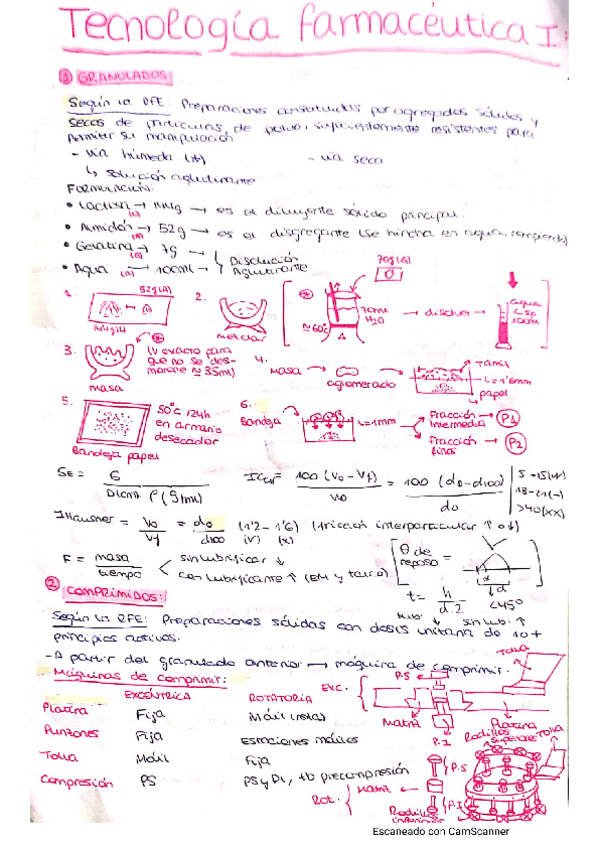 Tecnología farmacéutica I:
① GRANULADOS
Según la RFE: Preparaciones constituidas por agregados sólidos y
secos de partículas de polvo, suficientemente resistentes para
permitir su manipulación
- vía húmeda (*) - vía seca
↳ solución aglutinante
FORMULACIÓN:
• Lactosa → → es el diluyente sólido principal.
• Almidón → 52g → es el disgregante (se hincha en agua, )
• Gelatina → 7g →
• Agua → 100ml →
Disolución
Aglutinante
1. 52g(A)
2. mezclar
≈60ºC
H2O
→ disolver →
agua
csp
100ml
3. (V exacto para
que no se des-
morone ≈ 35ml)
masa
4. masa → aglomerado →
Tamiz
L=1'6mm
papel
5. 50ºC /24h
en armario
desecador
Bandeja papel
6. Bandeja
L=1mm
Fracción intermedia → P1
Fracción finos → P2
Se = 6 / Dlcm) ρ(g/ml)
ICarr = 100 (Vo - Vf) / Vo = 100 (do - d100) / do
5-15(v)
18-21(~)
>40(xx)
IHausner = Vo / Vf = do / d100 (1'2 - 1'6) (fricción interparticular ↑ o ↓)
(v) (x)
F = masa / tiempo
sin lubrificar ↓
con lubrificante ↑ (EM y talco)
θ de reposo =
t = h / d·2
<45º
sin lub. ↑
② COMPRIMIDOS:
Según la RFE: Preparaciones sólidas con dosis unitaria de 1 o +
principios activos.
- A partir del granulado anterior → máquina de comprimir.
Máquinas de comprimir:
EXCÉNTRICA ROTATORIA
Platina Fija Móvil (rota)
Punzones Fija Estaciones móviles
Tolva Móvil Fija
Compresión PS PS y PI, tb precompresión
EXC.
P.S
Tolva
Matriz
Platina
P.I
Rot.
P.S
Matriz
P.I
Rodillos superiores
Tolva
Rodillos inferiores
Escaneado con CamScanner